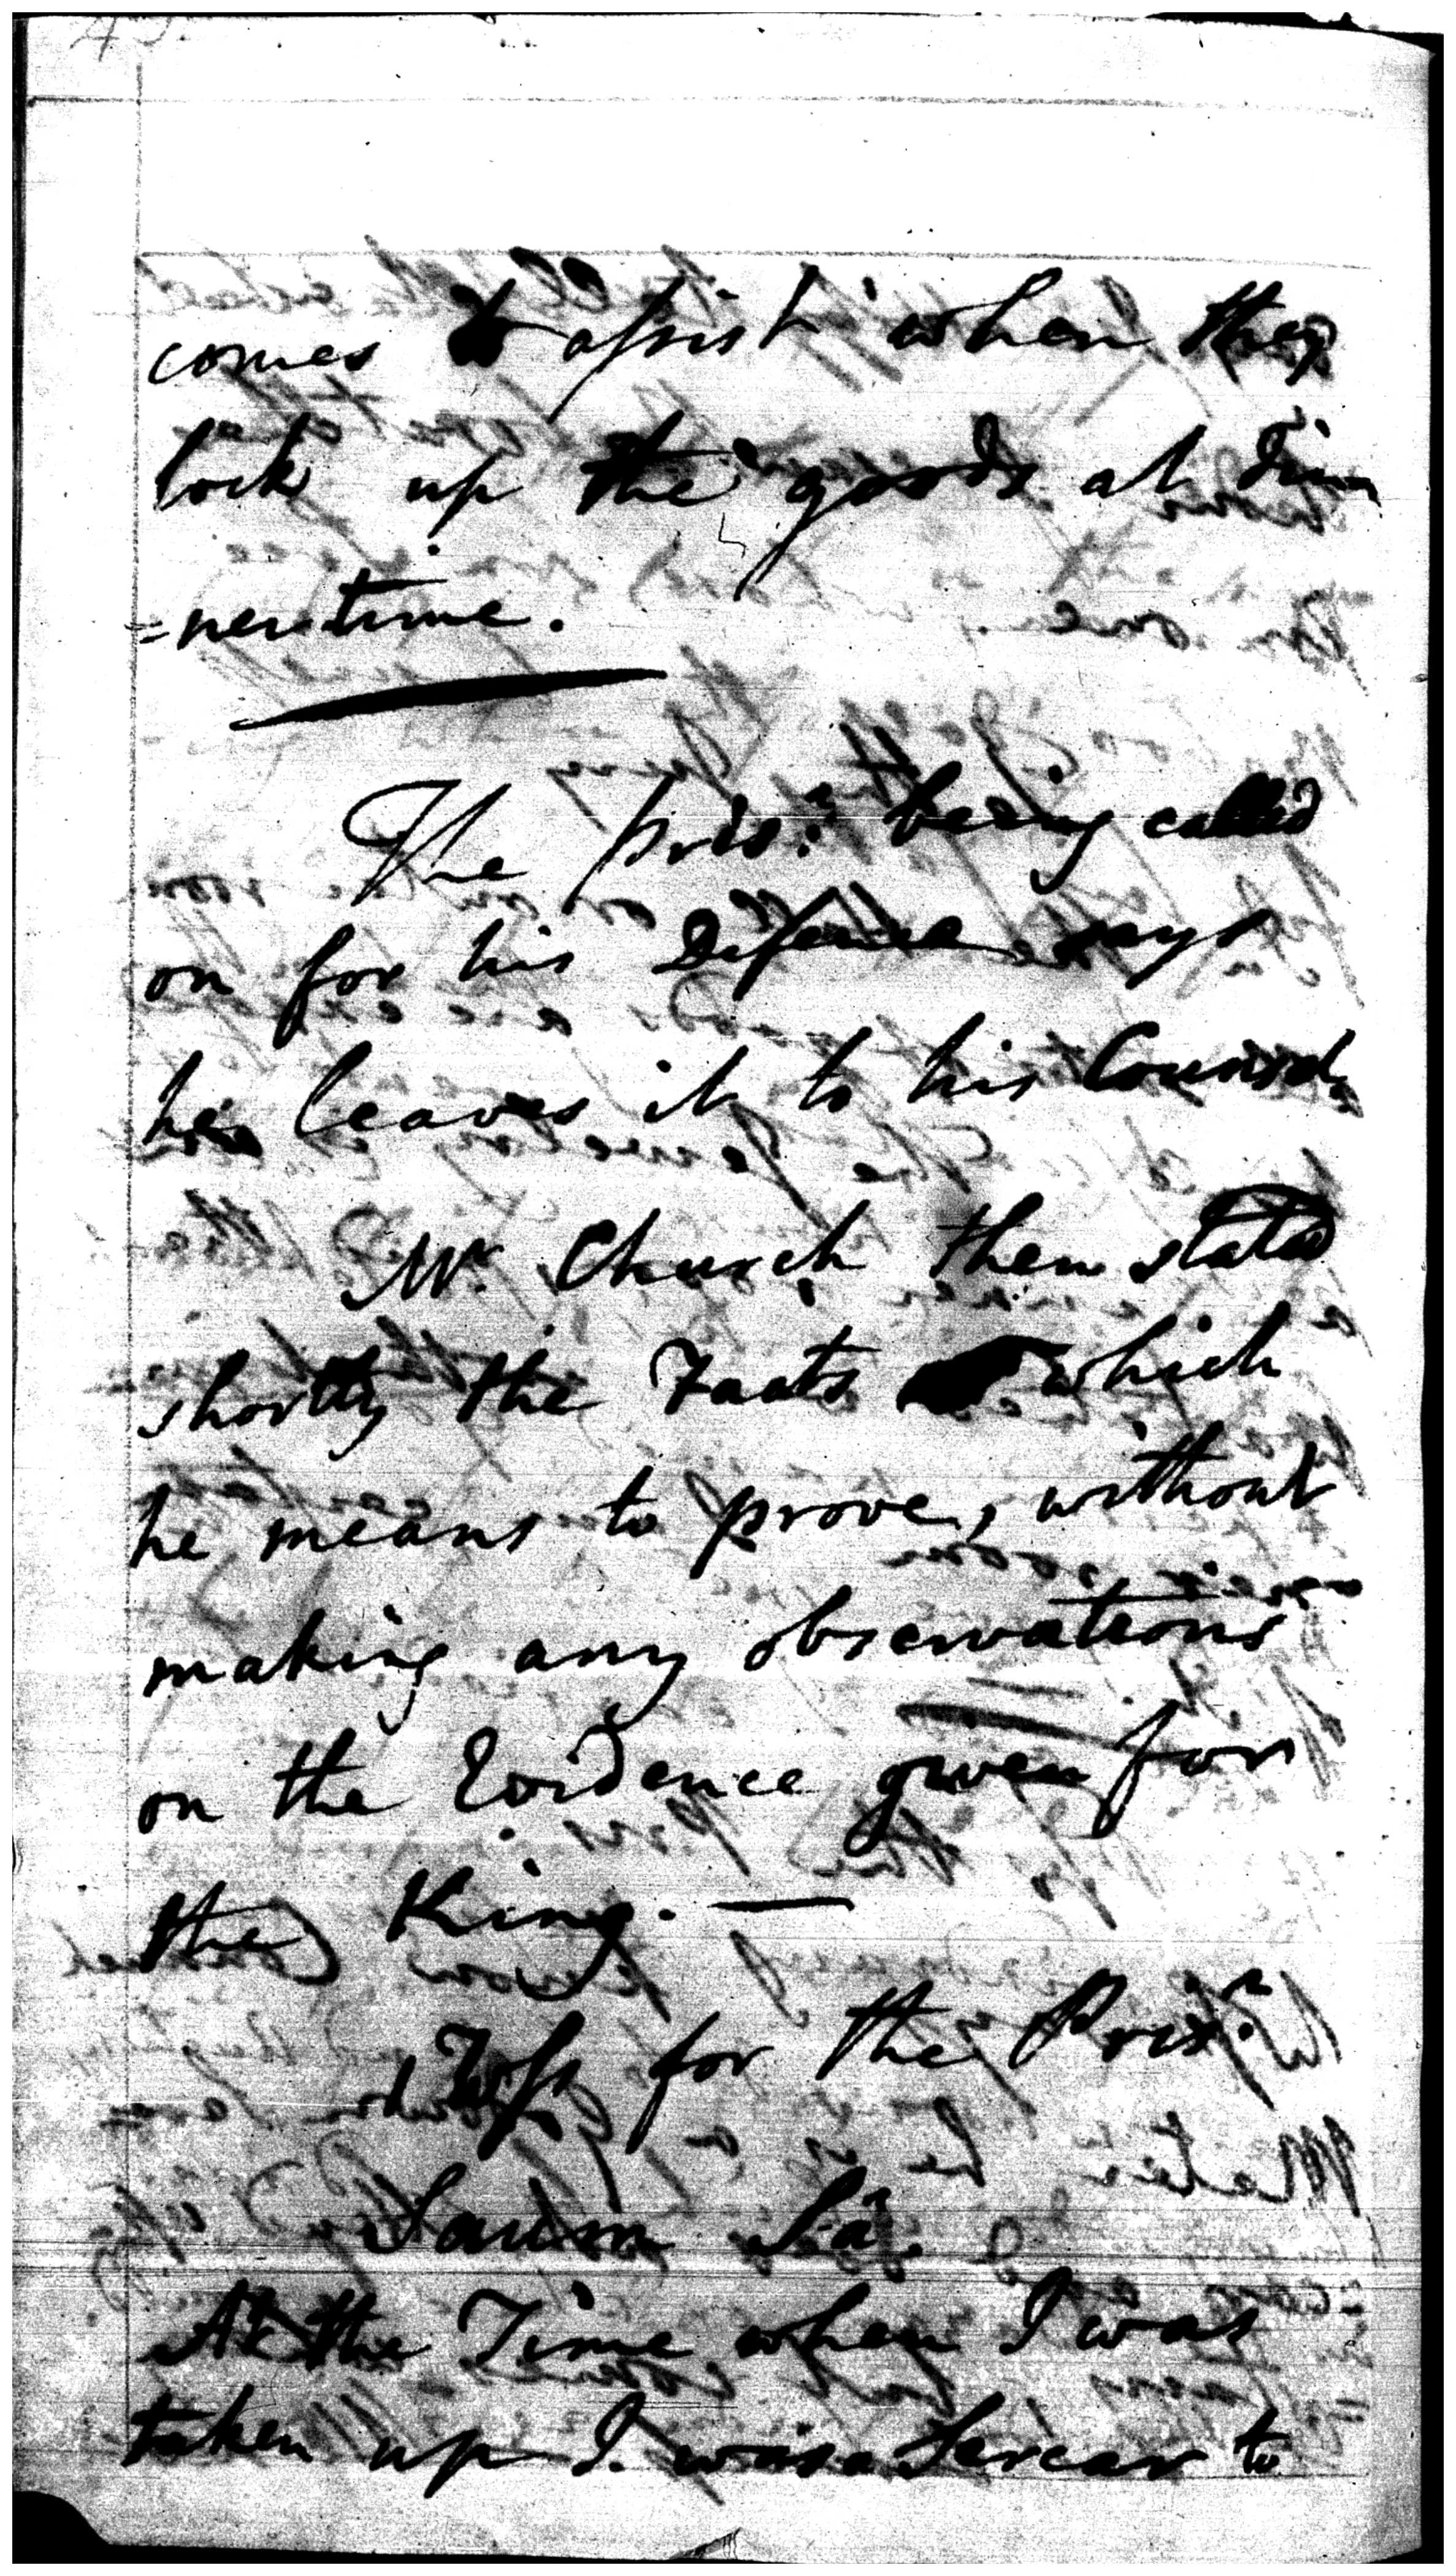 comes to assist when they
lock up the goods at Din
=ner time.
The Pris.r being called
on for his Defence says
he leaves it to his Counsel
Mr. Church then stated
shortly the Facts which
he means to prove, without
making any observations
on the Evidence given for
the King. —
for the Pris.r
At the Time when I was
taken up I was a Sercar to